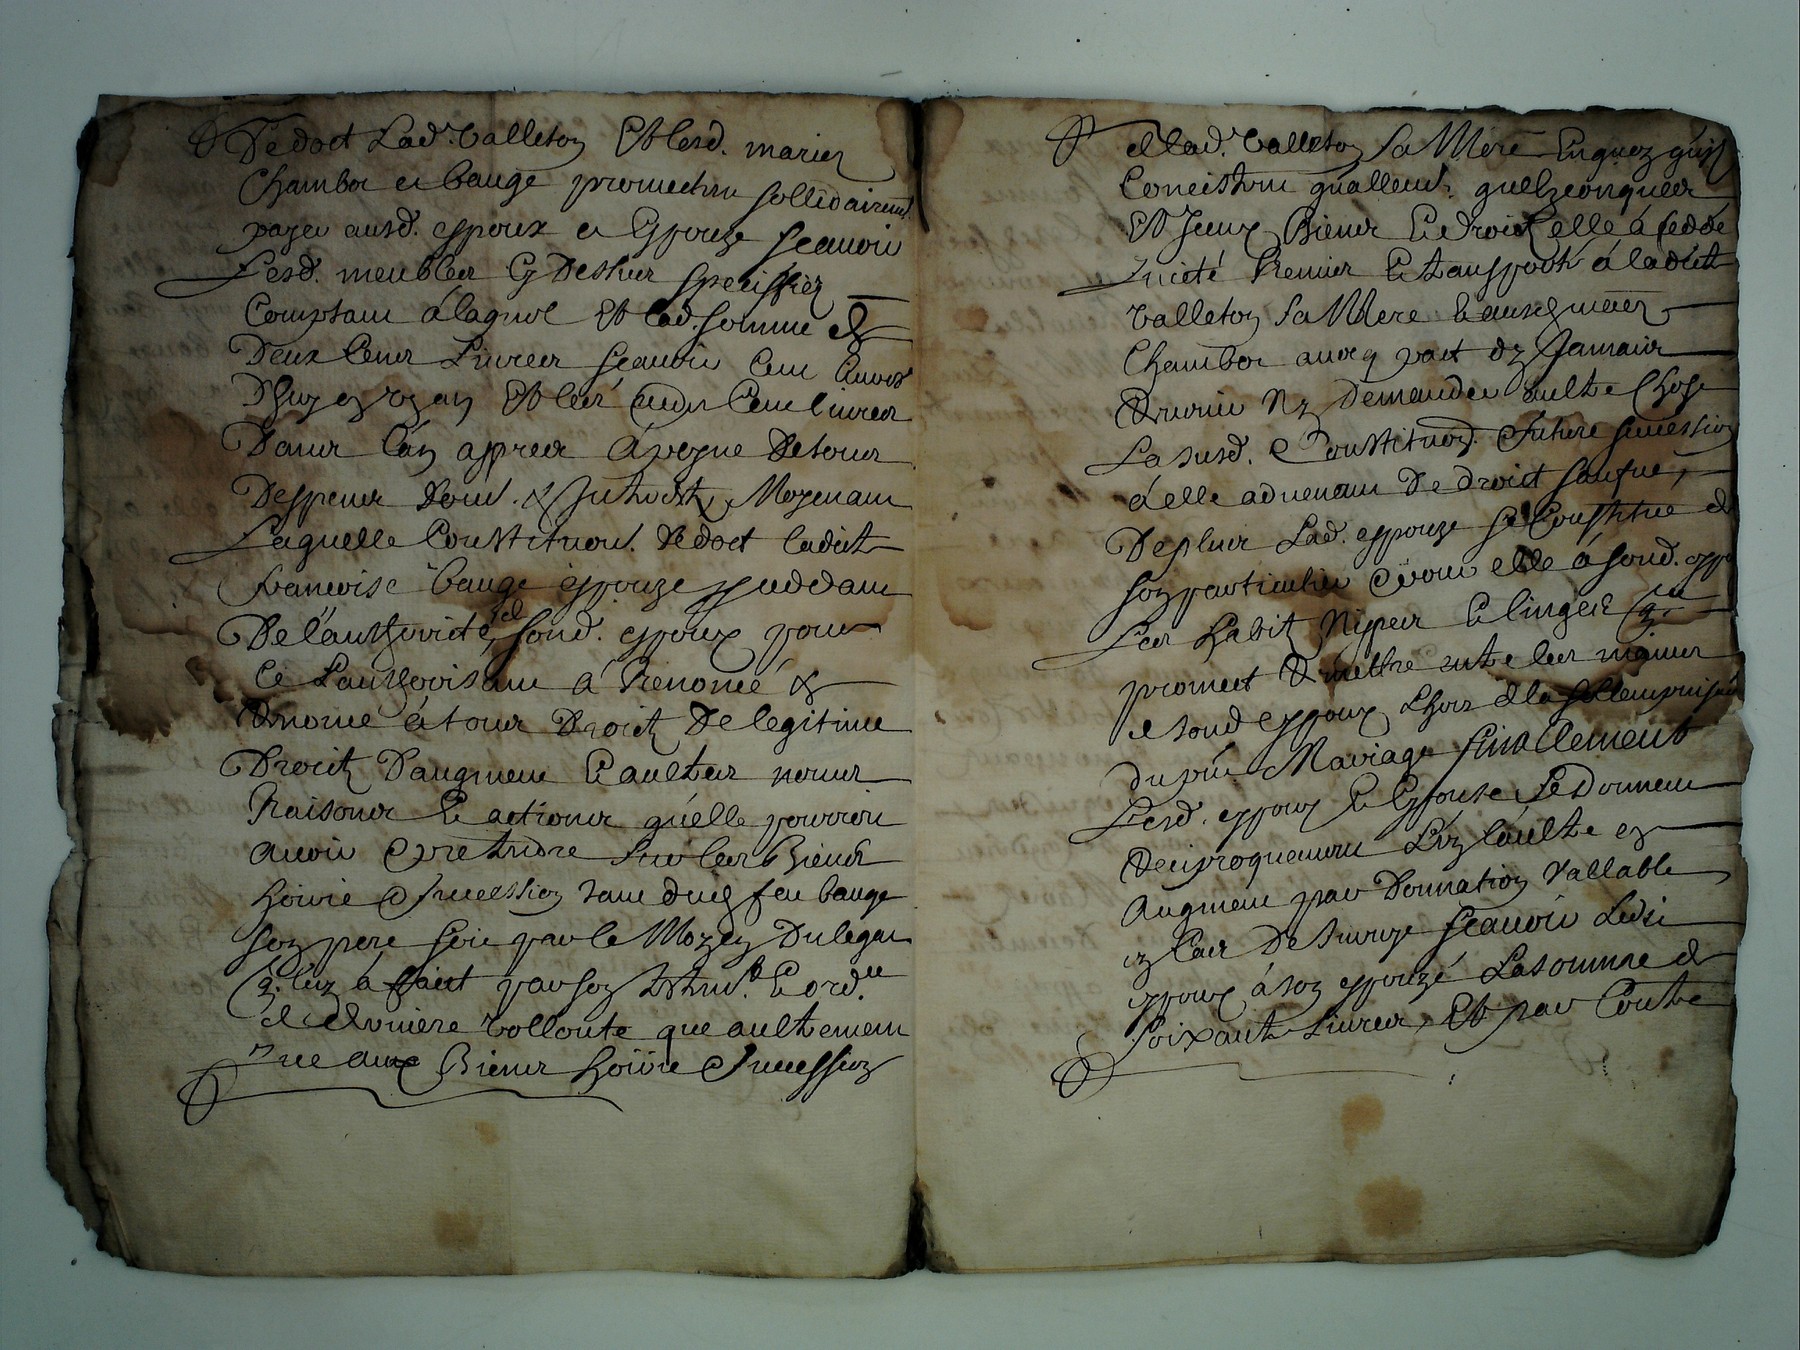 De dot Lad. Valleton Et lesd. mariez
Chambor et bauge promectent sollidairemt.
payer ausd. espoux et Espouze scavoir
Lesd. meubles Cy Dessus speciffiez
Comptant et lad. somme de
Deux Cens Livres scavoir Cent livres
Et les Cent livres
Dans L'an appres à peyne de tous
Despens Moyenant
Laquelle Constitution. De dot ladicte
francoise bauge espouze procedant
De l'authorité dud sond. espoux pour
Ce L'authorisant à Renoncé &
Renonce à tous Droictz De legitime
Droictz D'augment Et aultres noms
Raisons Et actions qu'elle pourroit
avoir & pretendre sur les Biens
hoirie & succession dud feu bauge
son pere soit par le Moyen Du legat
q. luy à faict par son Et ord.re
de derniere vollonté que aultrement
que aux Biens hoirie & succession
de lad. Valleton Sa Mere En quoy qu'ilz
Concistent quelzconques
Et Iceux Biens Et droictz elle à ceddé
quicté Remis Et transporté à ladicte
Valleton Sa Mere Et ausd mariez
Chambor avecq pact de Jamais
Rien Ny Demander aultre Chose
La susd. Constitution. future succession
à elle advenant De droict saufve,
De plus Lad. espouze se Constitue de
son particulier elle à sond.
Les habitz Nippes Et linges q.
promect Remettre entre les mains
de sond espoux Lhors de la sollempnisaon
du pnt Mariage finallement
Lesd. espoux Et Espouse se Donnent
Reciproquement L'un L'aultre en
Augment par Donnation Vallable
en Cas De survye scavoir Ledit
espoux à son espouzé La somme de
soixante Livres, Et par Contre